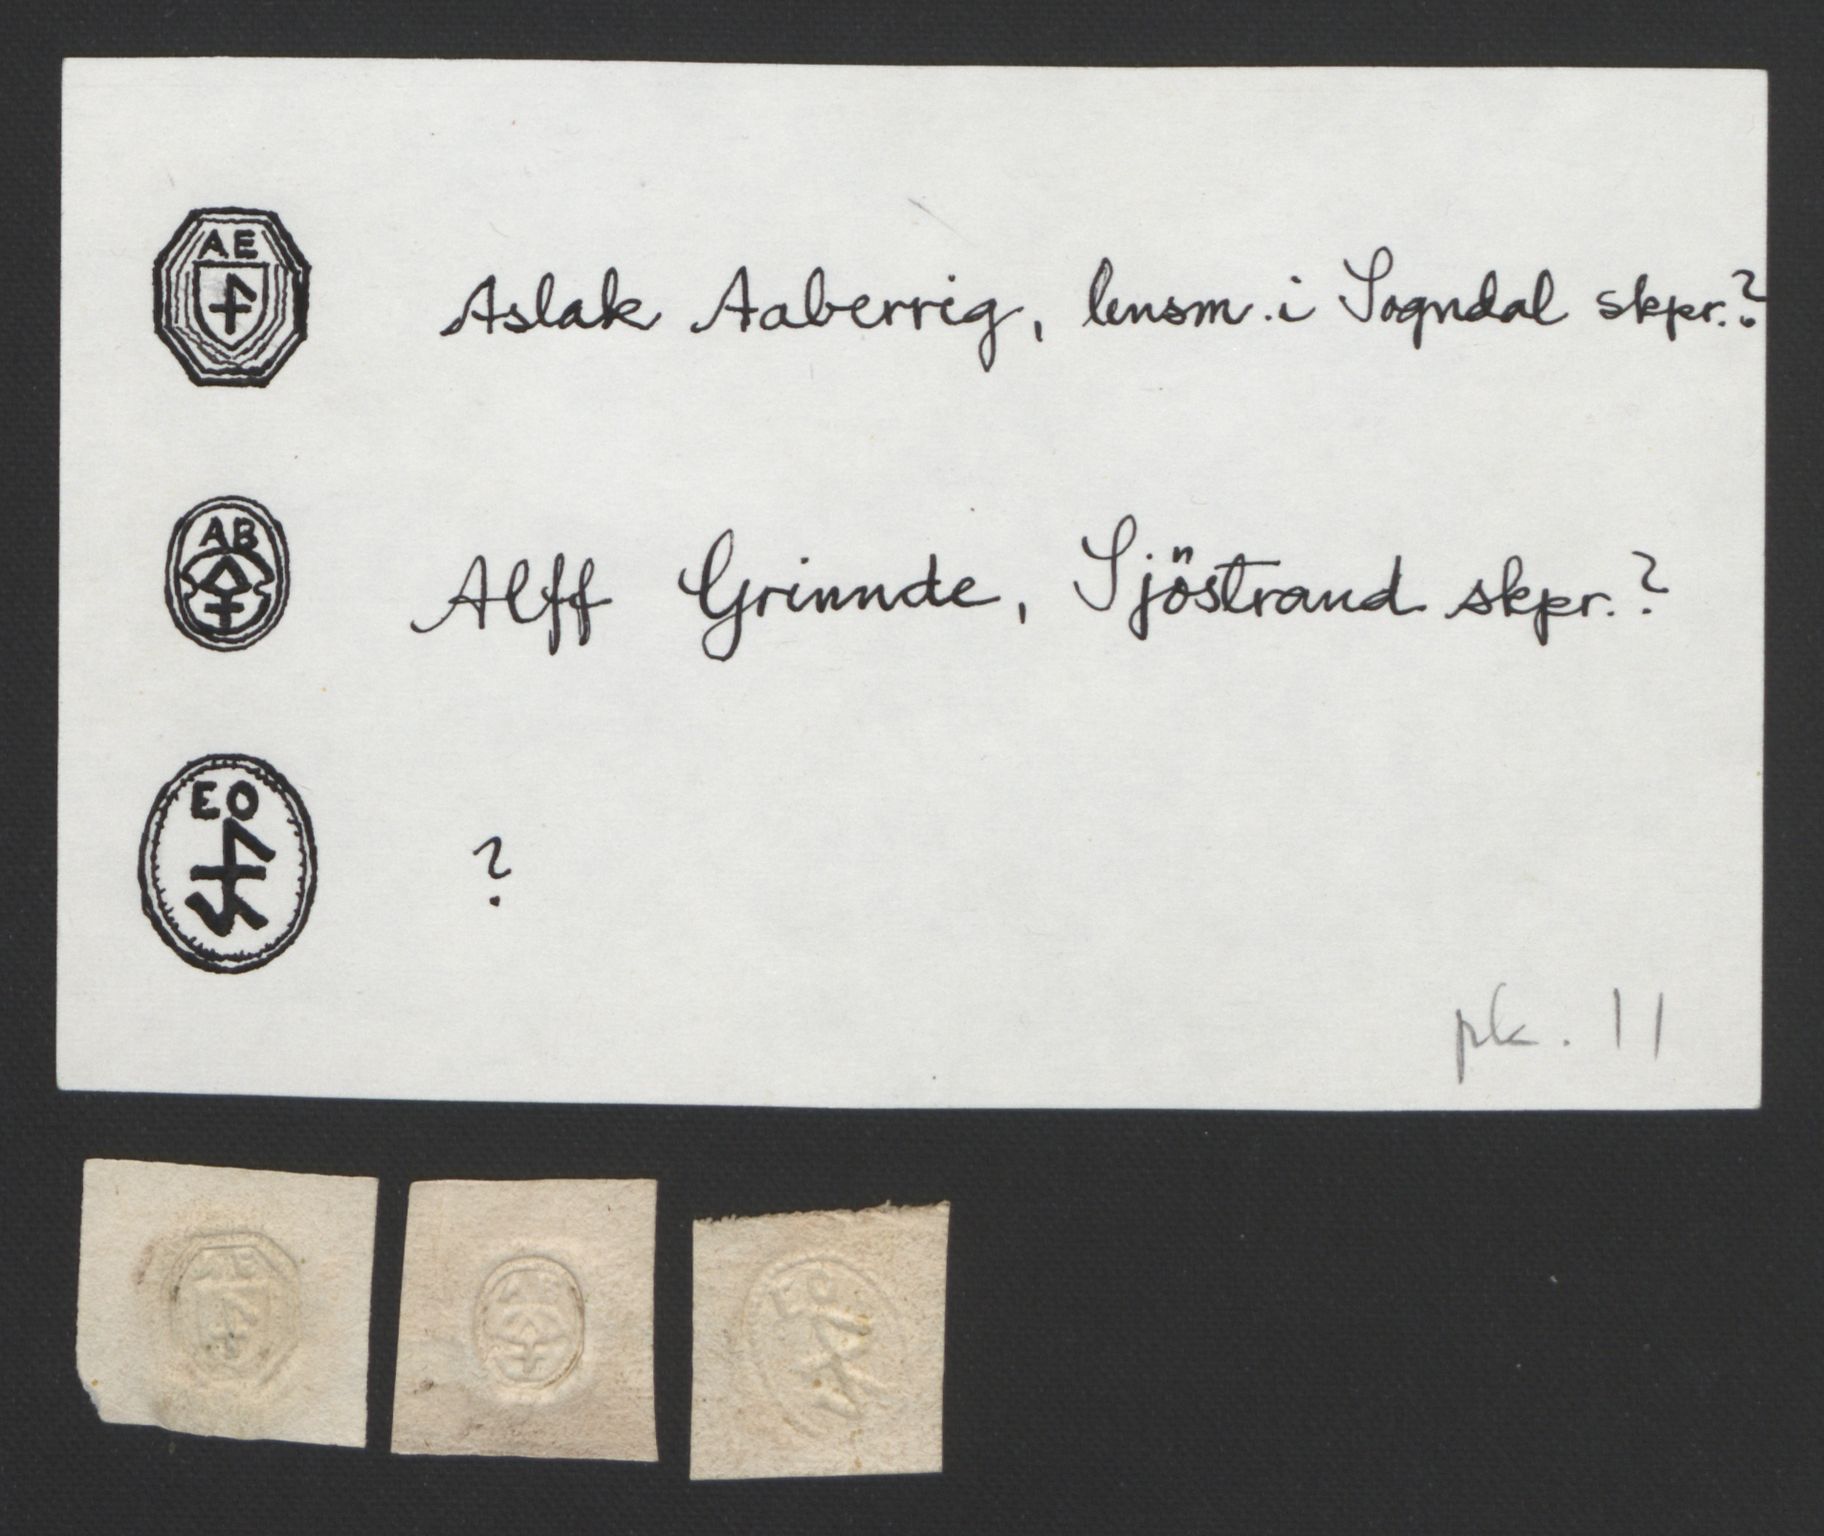 AE
Aslak Aaberrig, lensm. i Sogndal skpr.?
AB
Alff Grinnde, Sjöstrand skpr.?
EO
?
pk. 11